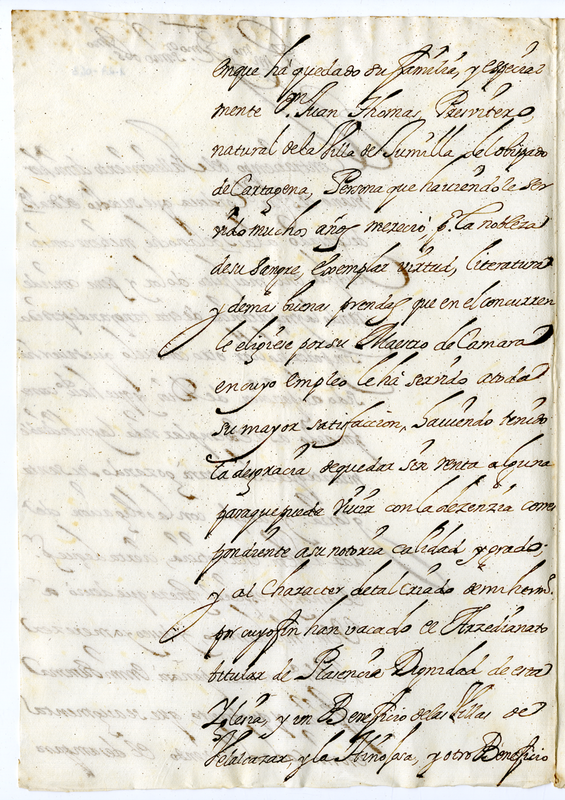 enque há quedado su familia, y especial
mente Dn. Juan Thomas, Presvitero,
natural de la Villa de Jumilla del obispado
de Cartagena, Persona que haviendole ser
vido muchos años merecio, pr. la nobleza
de su sangre, exemplar virtud, literatura
y demas buenas prendas que en el concurren
le eligiese por su Maestro de Camara
en cuyo empleo le há servido a toda
su mayor satisfaccion, haviendo tenido
la desgracia de quedar sin renta alguna
para que puede vivir con la dezenzia corres
pondiente a su notoria calidad y grado;
y al Character de tal criado de mi herm.o
por cuyo fin han vacado el Arzedianato
titular de Plasencia Dignidad de esta
Yglesia, y un Beneficio de las Villas de
Velalcazar, y la Hinojosa, y otro Beneficio